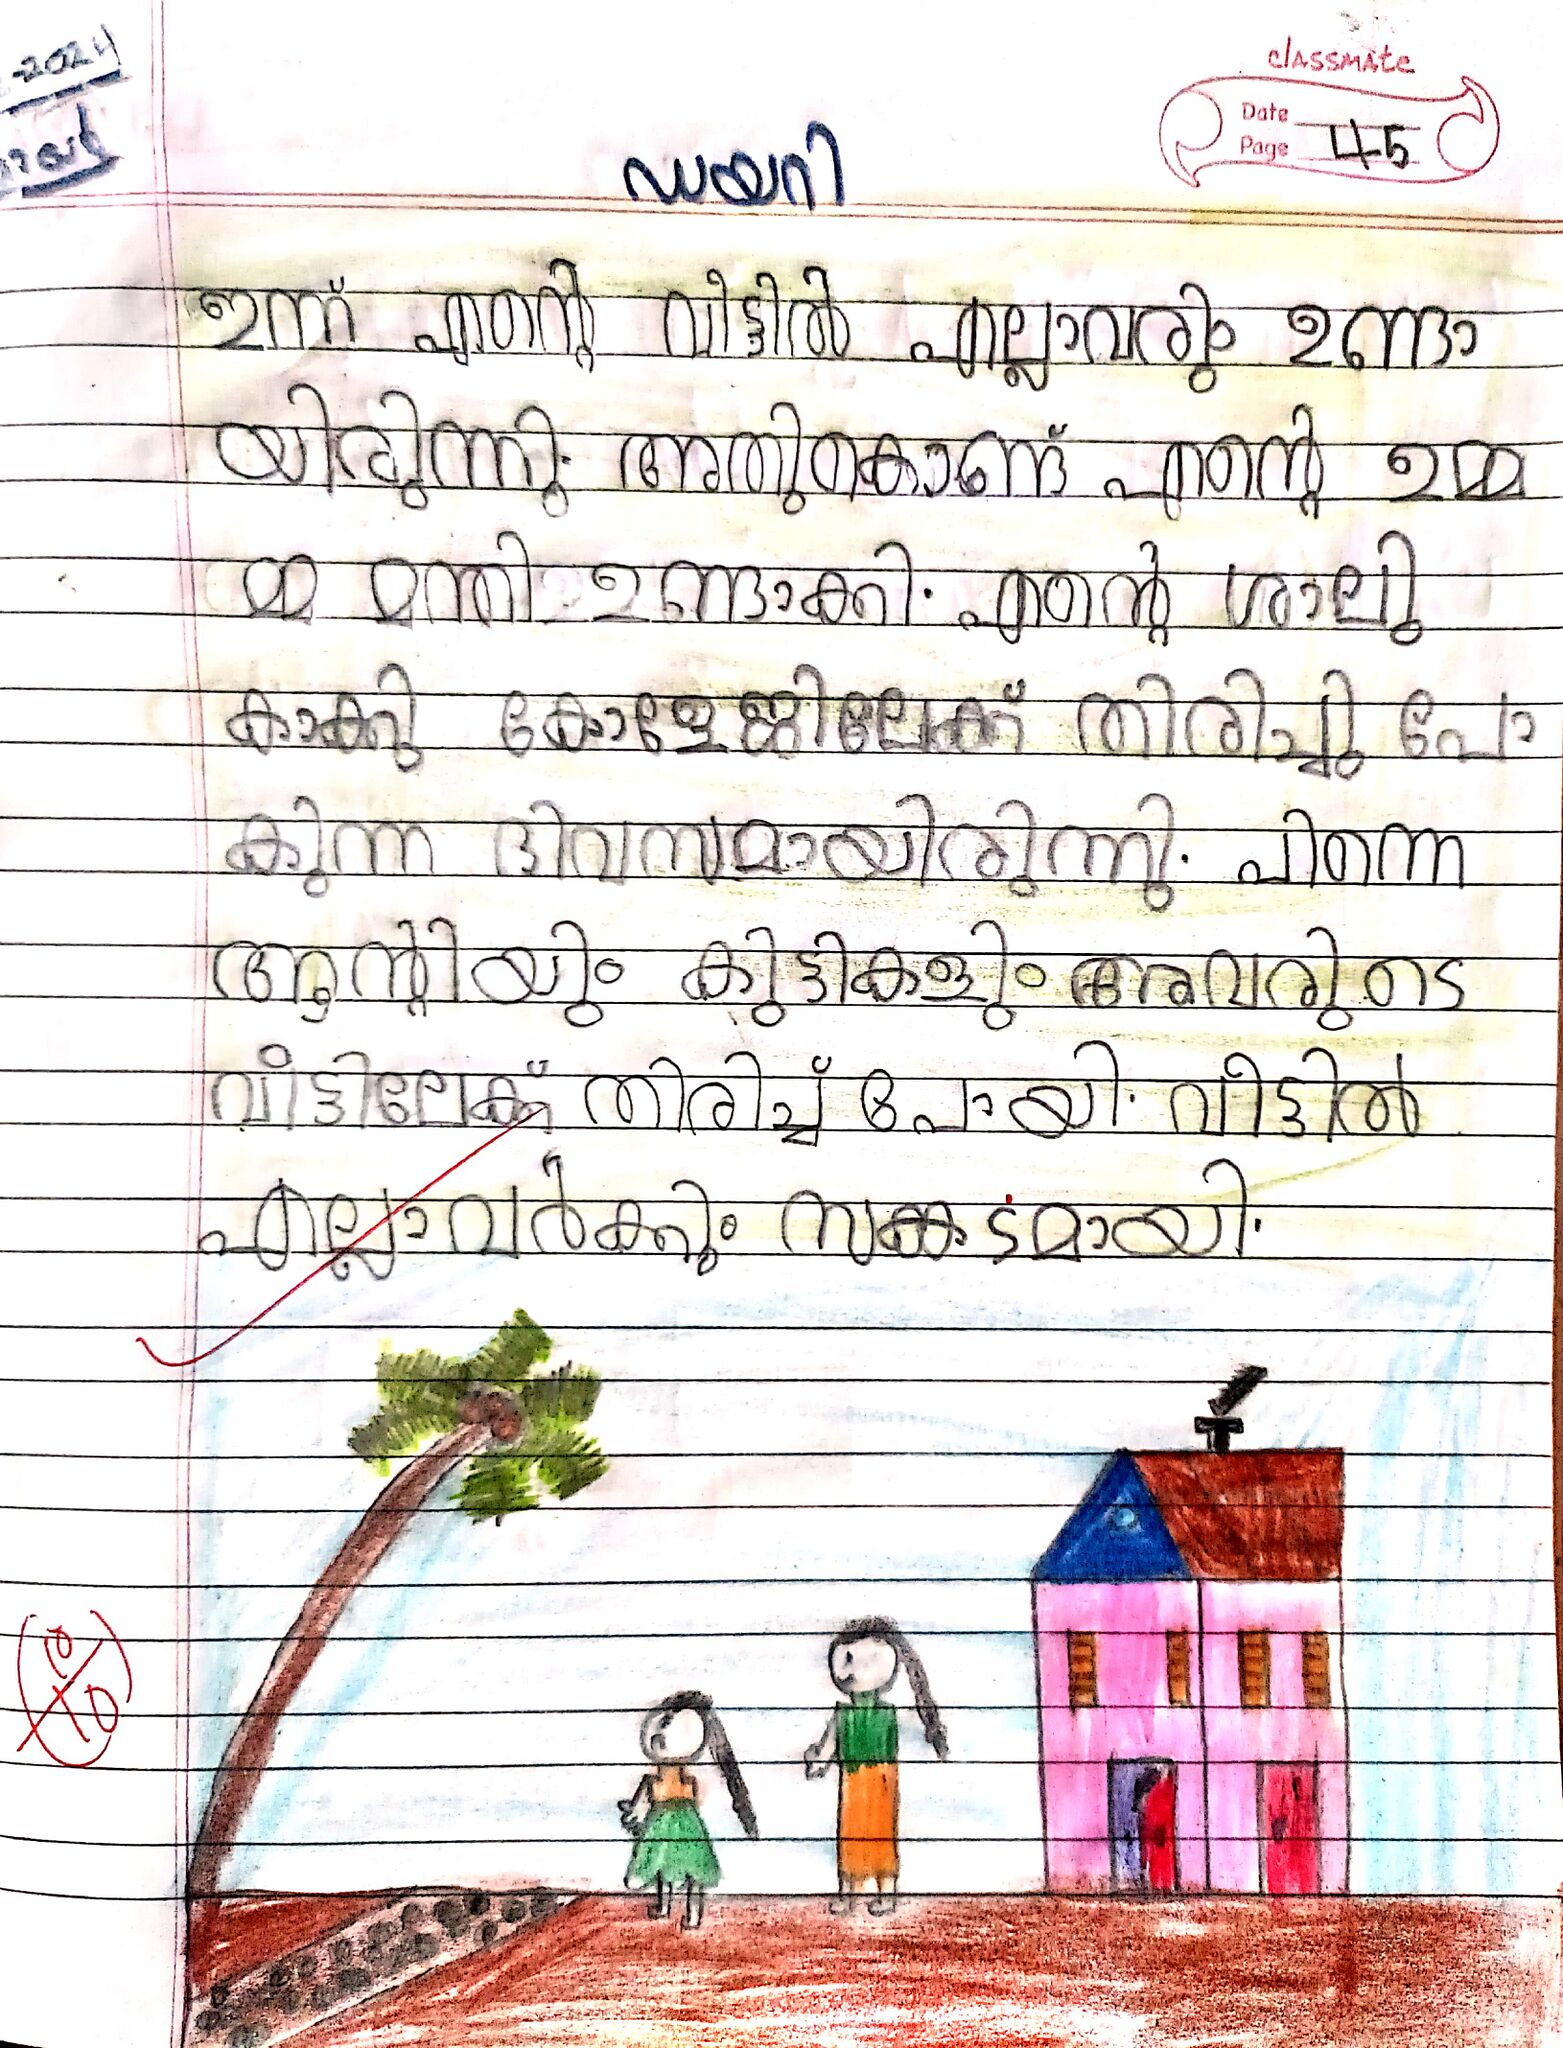 -2024
classmate
Date
Page 45
ഡയറി
ഇന്ന് എന്റെ വീട്ടിൽ എല്ലാവരും ഉണ്ടാ
യിരുന്നു. അതുകൊണ്ട് എന്റെ ഉമ്മ
മ്മ മന്തി ഉണ്ടാക്കി. എന്റെ ശാലു
കാക്കു കോളേജിലേക്ക് തിരിച്ചു പോ
കുന്ന ദിവസമായിരുന്നു. പിന്നെ
ആന്റിയും കുട്ടികളും അവരുടെ
വീട്ടിലേക്ക് തിരിച്ച് പോയി. വീട്ടിൽ
എല്ലാവർക്കും സങ്കടമായി.
10
10